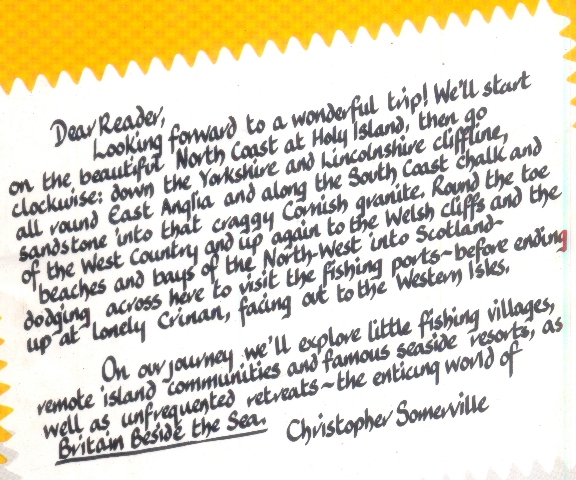 Dear Reader,
Looking forward to a wonderful trip! We'll start
on the beautiful North Coast at Holy Island, then go
clockwise: down the Yorkshire and Lincolnshire cliffline,
all round East Anglia and along the South Coast chalk and
sandstone into that craggy Cornish granite. Round the toe
of the West Country and up again to the Welsh cliffs and the
beaches and bays of the North-West into Scotland~
dodging across here to visit the fishing ports~before ending
up at lonely Crinan, facing out to the Western Isles.
On our journey we'll explore little fishing villages,
remote island communities and famous seaside resorts, as
well as unfrequented retreats~the enticing world of
Britain Beside the Sea.
Christopher Somerville